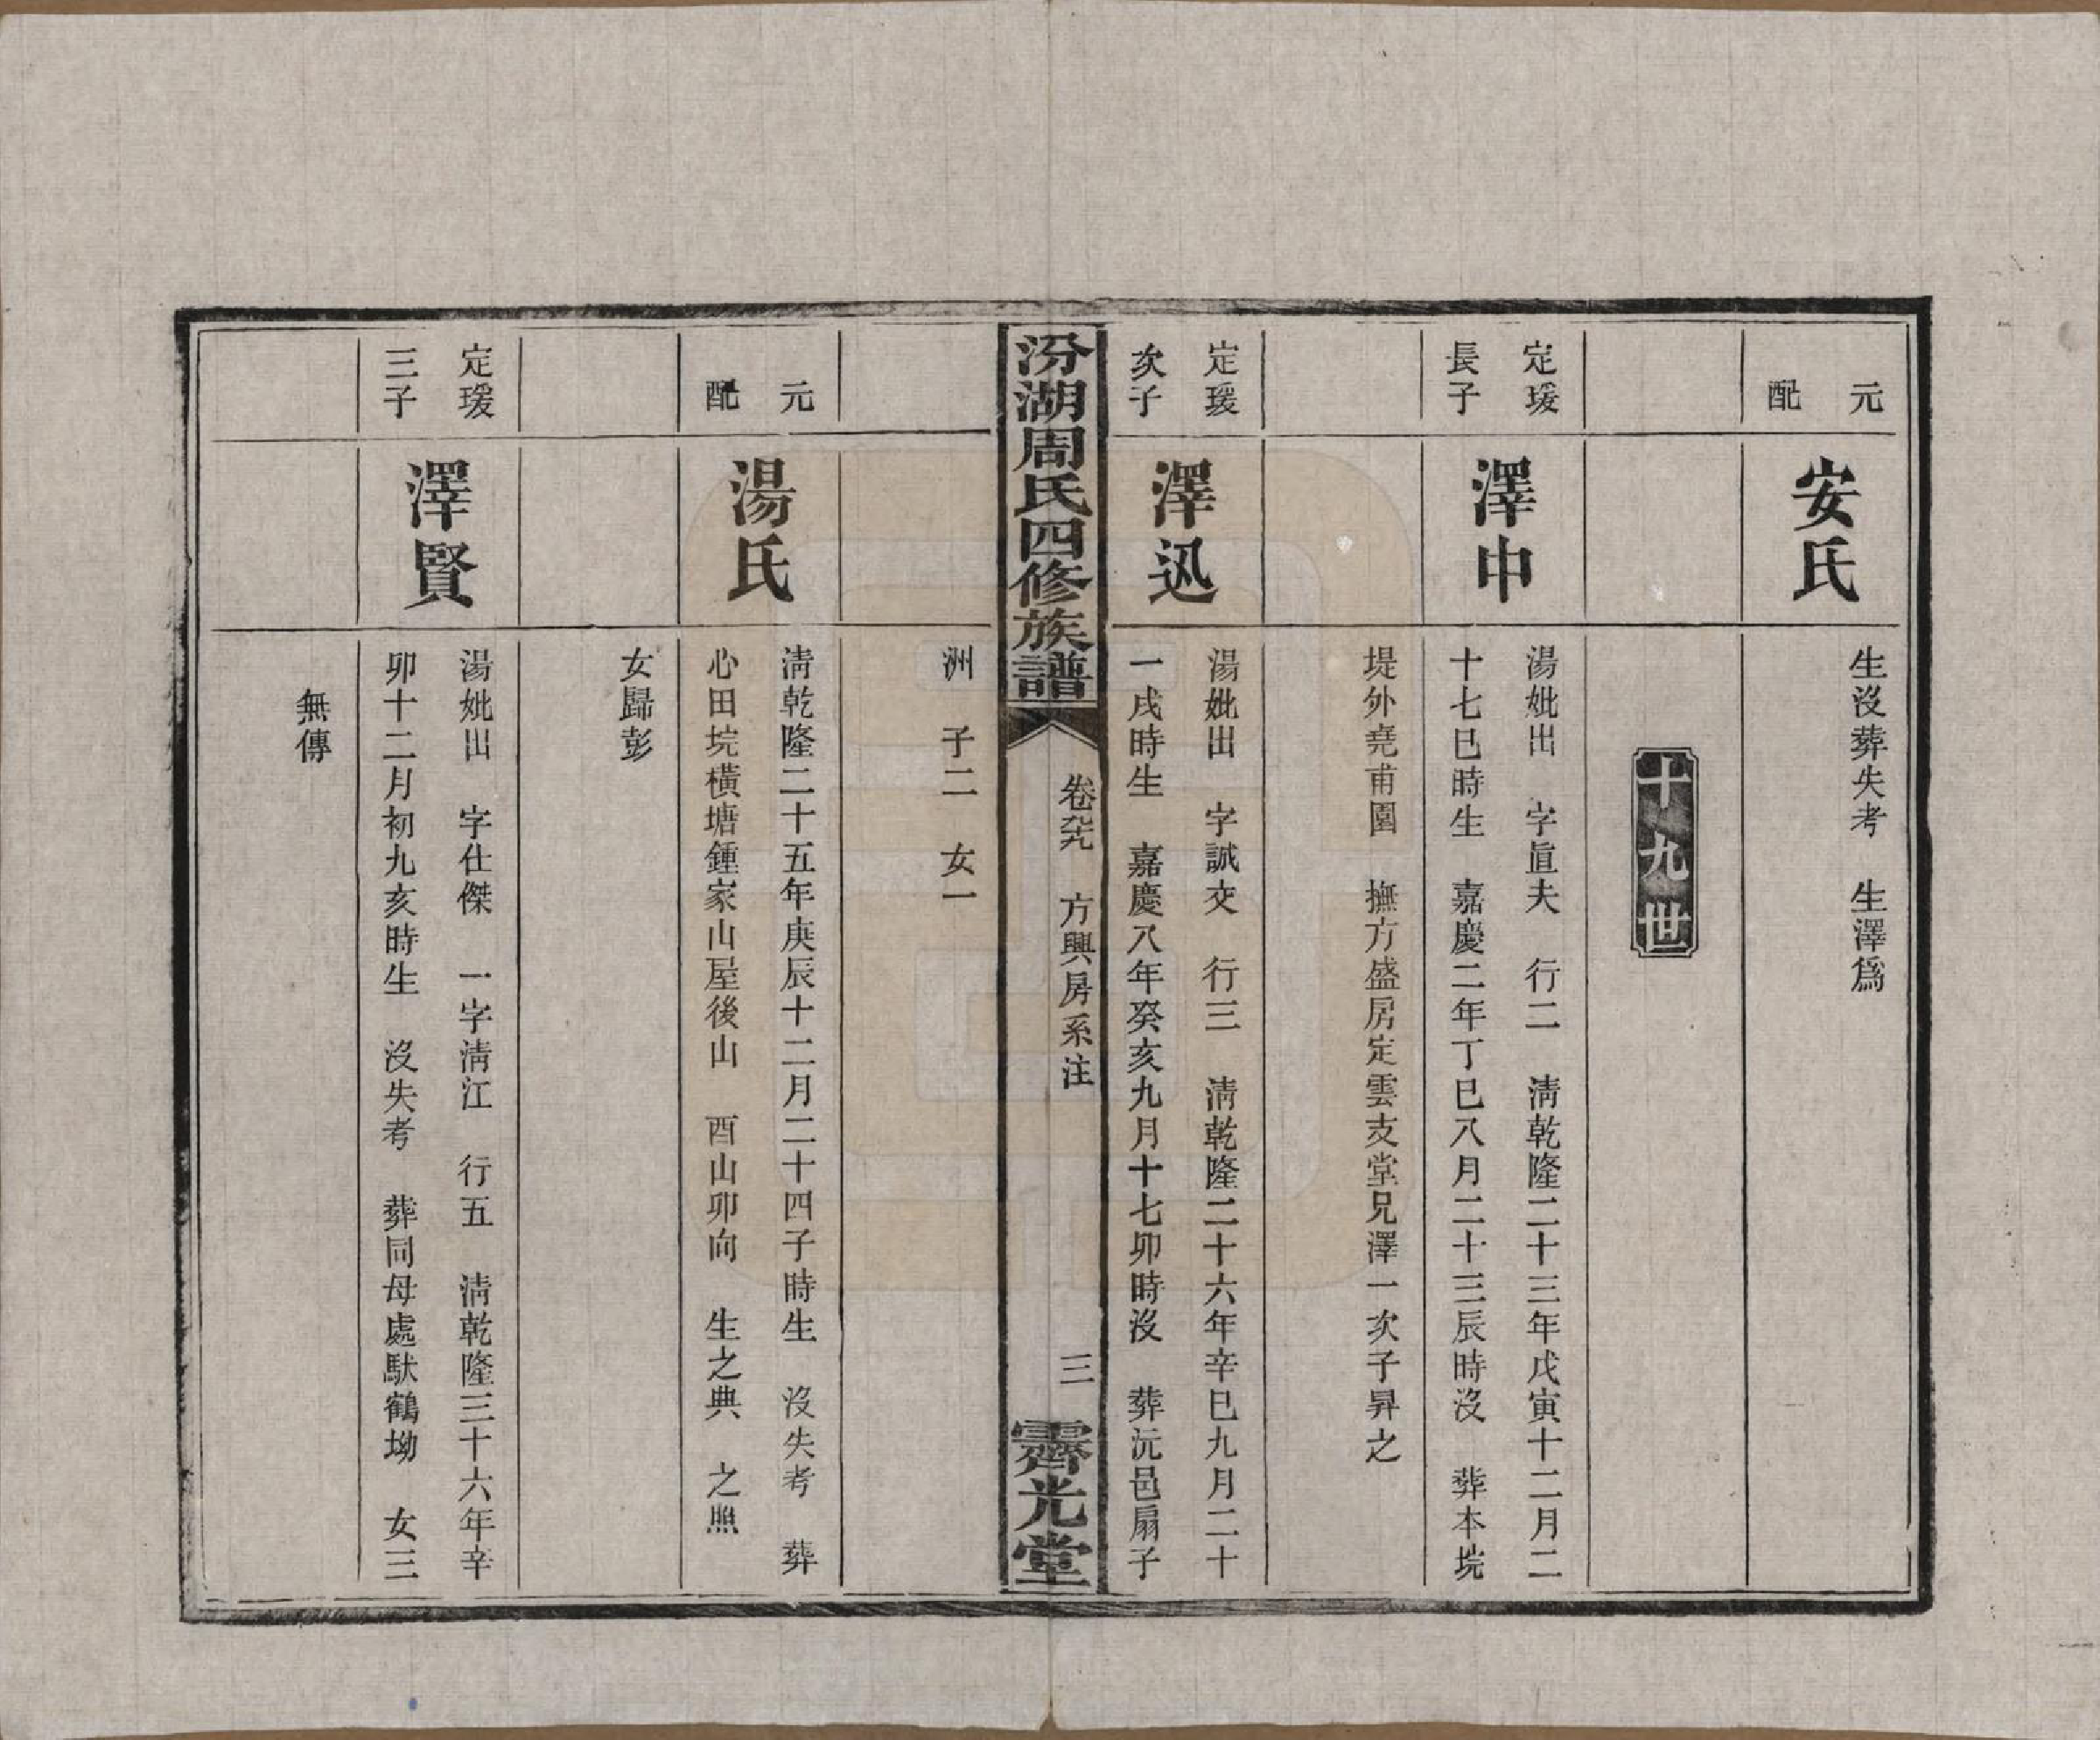 元
配
安氏
生沒葬失考　生澤爲
十九世
定瑗
長子
澤中
湯妣出　字眞夫　行二　淸乾隆二十三年戊寅十二月二
十七巳時生　嘉慶二年丁巳八月二十三辰時沒　葬本垸
堤外堯甫園　撫方盛房定雲支堂兄澤一次子昇之
定瑗
次子
澤迅
湯妣出　字誠交　行三　淸乾隆二十六年辛巳九月二十
一戌時生　嘉慶八年癸亥九月十七卯時沒　葬沅邑扇子
汾湖周氏四修族譜
卷　方興房系注
三
霽光堂
洲　子二　女一
元
配
湯氏
淸乾隆二十五年庚辰十二月二十四子時生　沒失考　葬
心田垸橫塘鍾家山屋後山　酉山卯向　生之典　之照
女歸彭
定瑗
三子
澤賢
湯妣出　字仕傑　一字淸江　行五　淸乾隆三十六年辛
卯十二月初九亥時生　沒失考　葬同母處馱鶴坳　女三
無傳